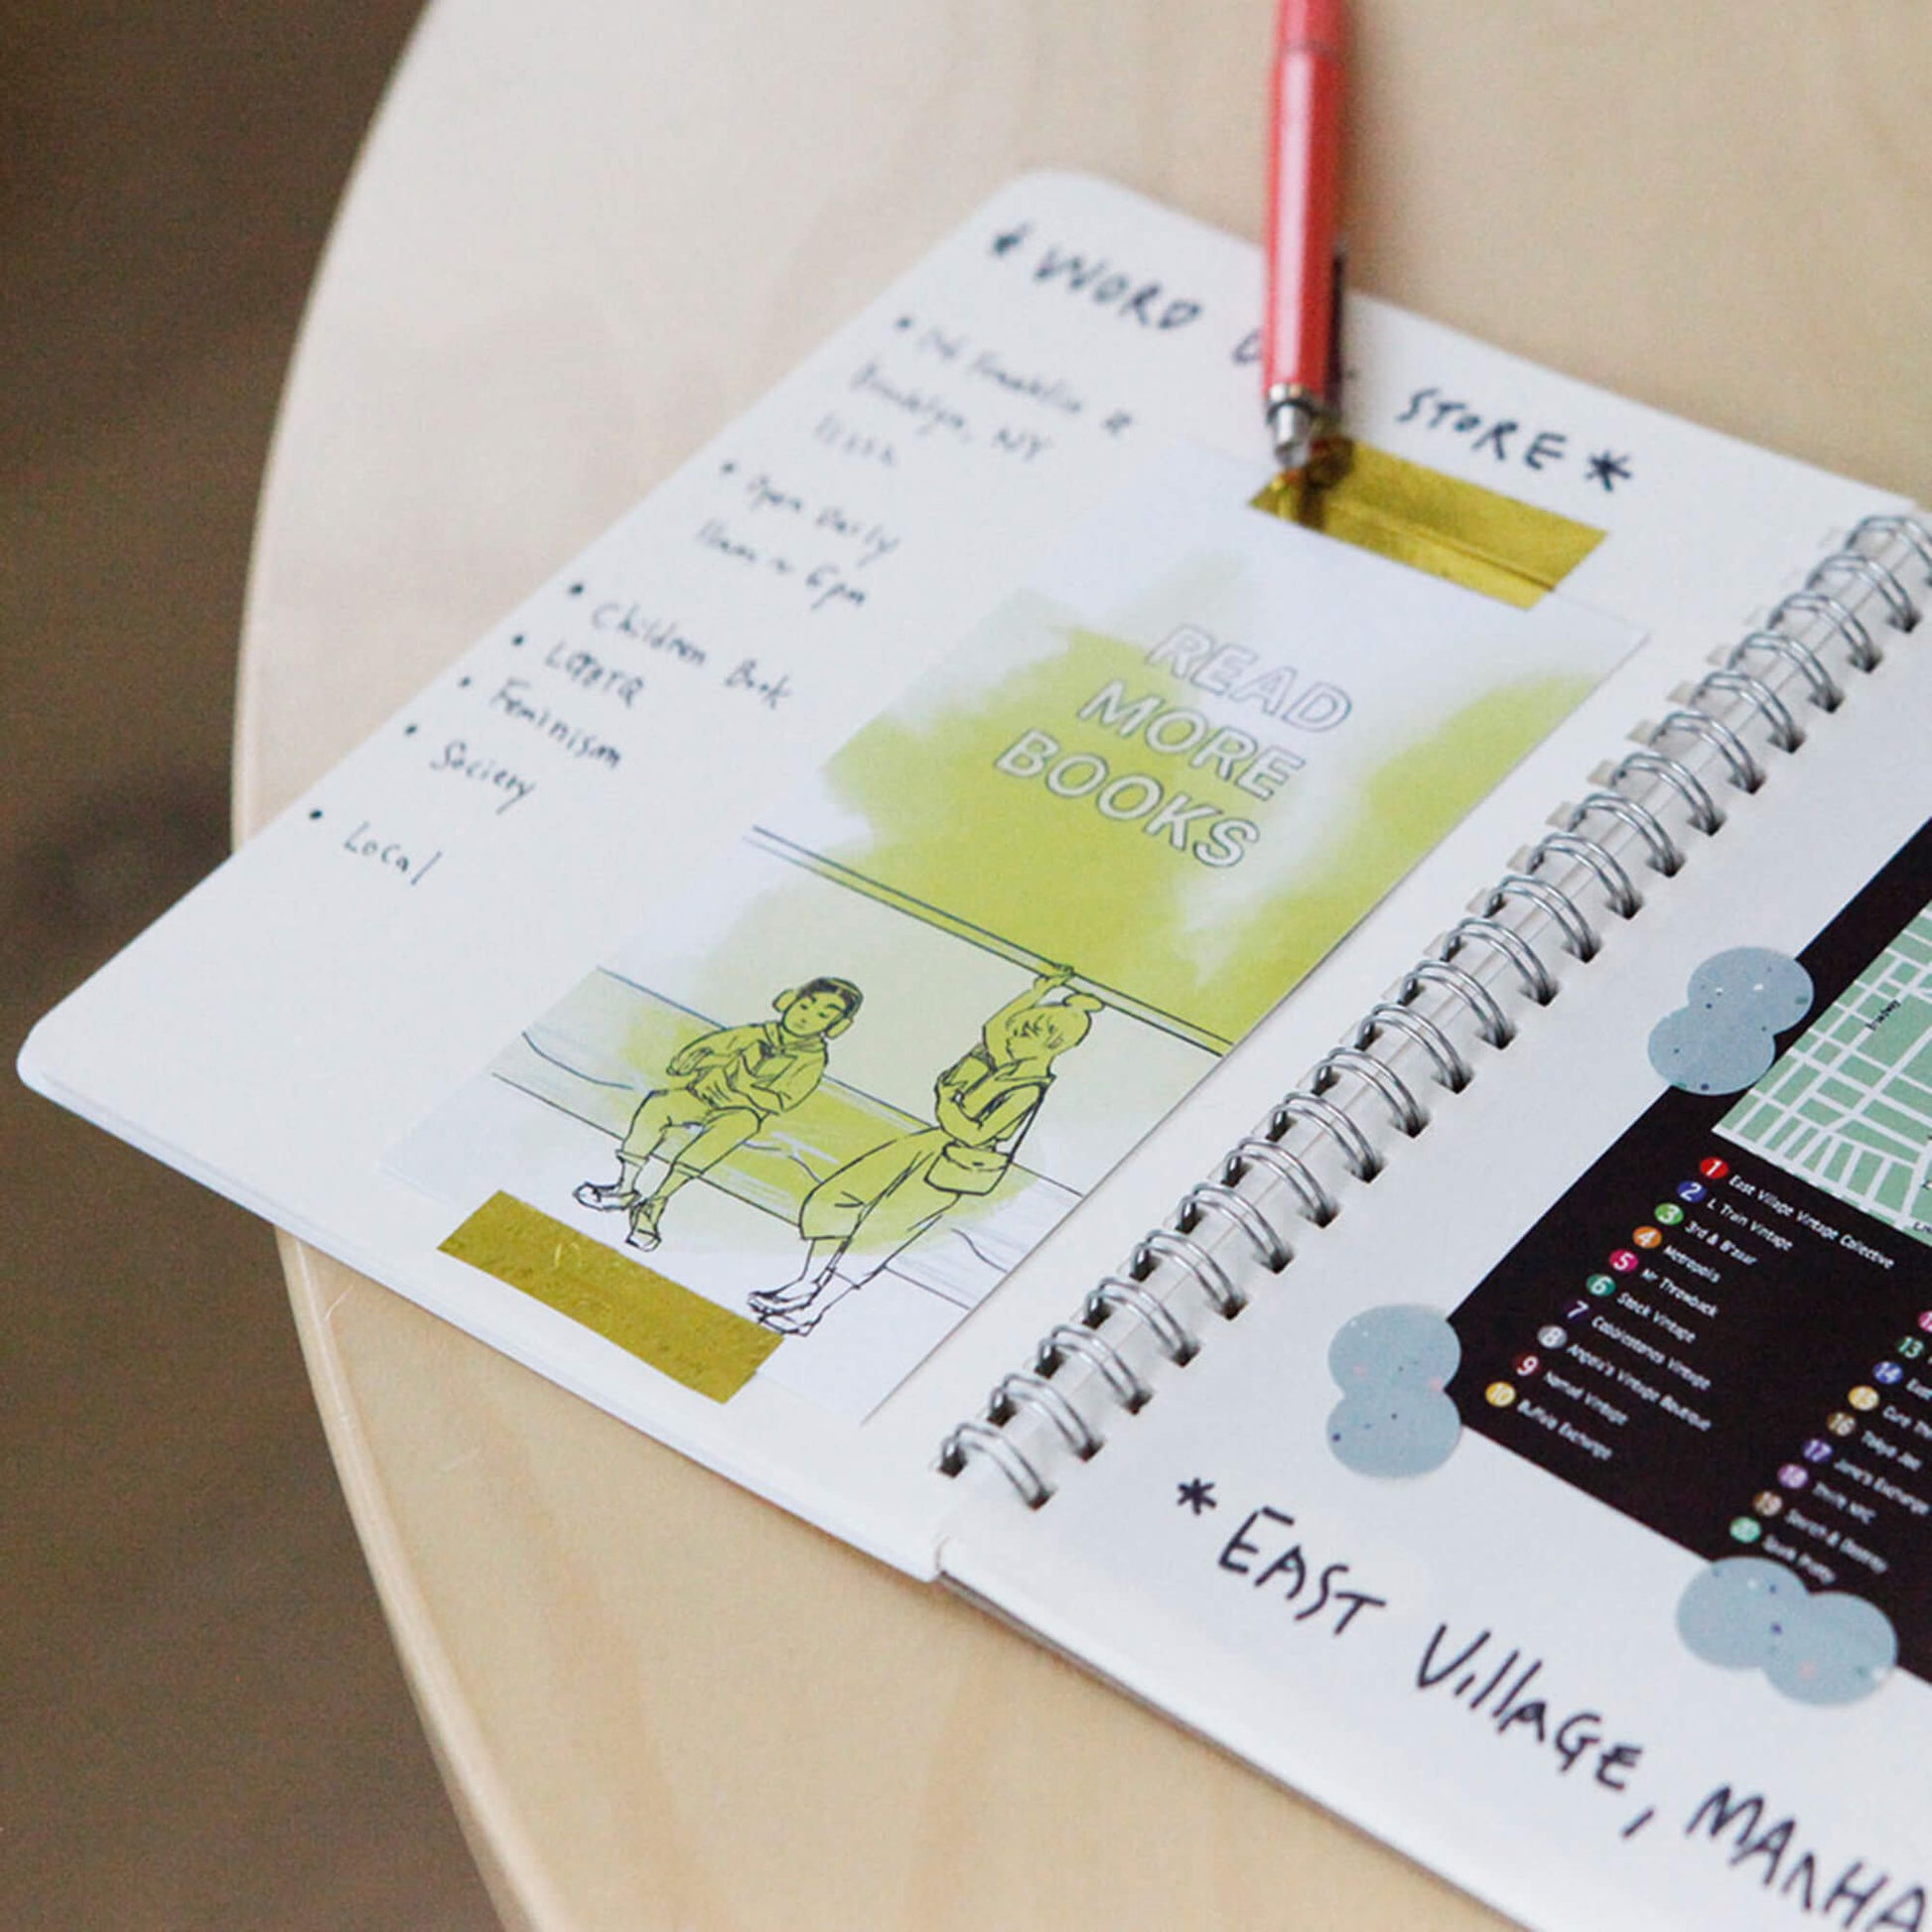 * WORD STORE *
Franklin st
Brooklyn, NY
• Open Daily
11am ~ 6pm
• Children Book
• LGBTQ
• Feminism
• Society
• Local
READ
MORE
BOOKS
1 East Village Vintage Collective
2 L Train Vintage
3 3rd & B'zaar
4 Metropolis
5 Mr Throwback
6 Stock Vintage
7 Cobblestones Vintage
8 Angela's Vintage Boutique
9 Nomad Vintage
10 Buffalo Exchange
13
14
15 Cure
16 Tokyo Joe
17 Jane's Exchange
18 Thrift NYC
19 Search & Destroy
20
* EAST VillAGE, MANHA